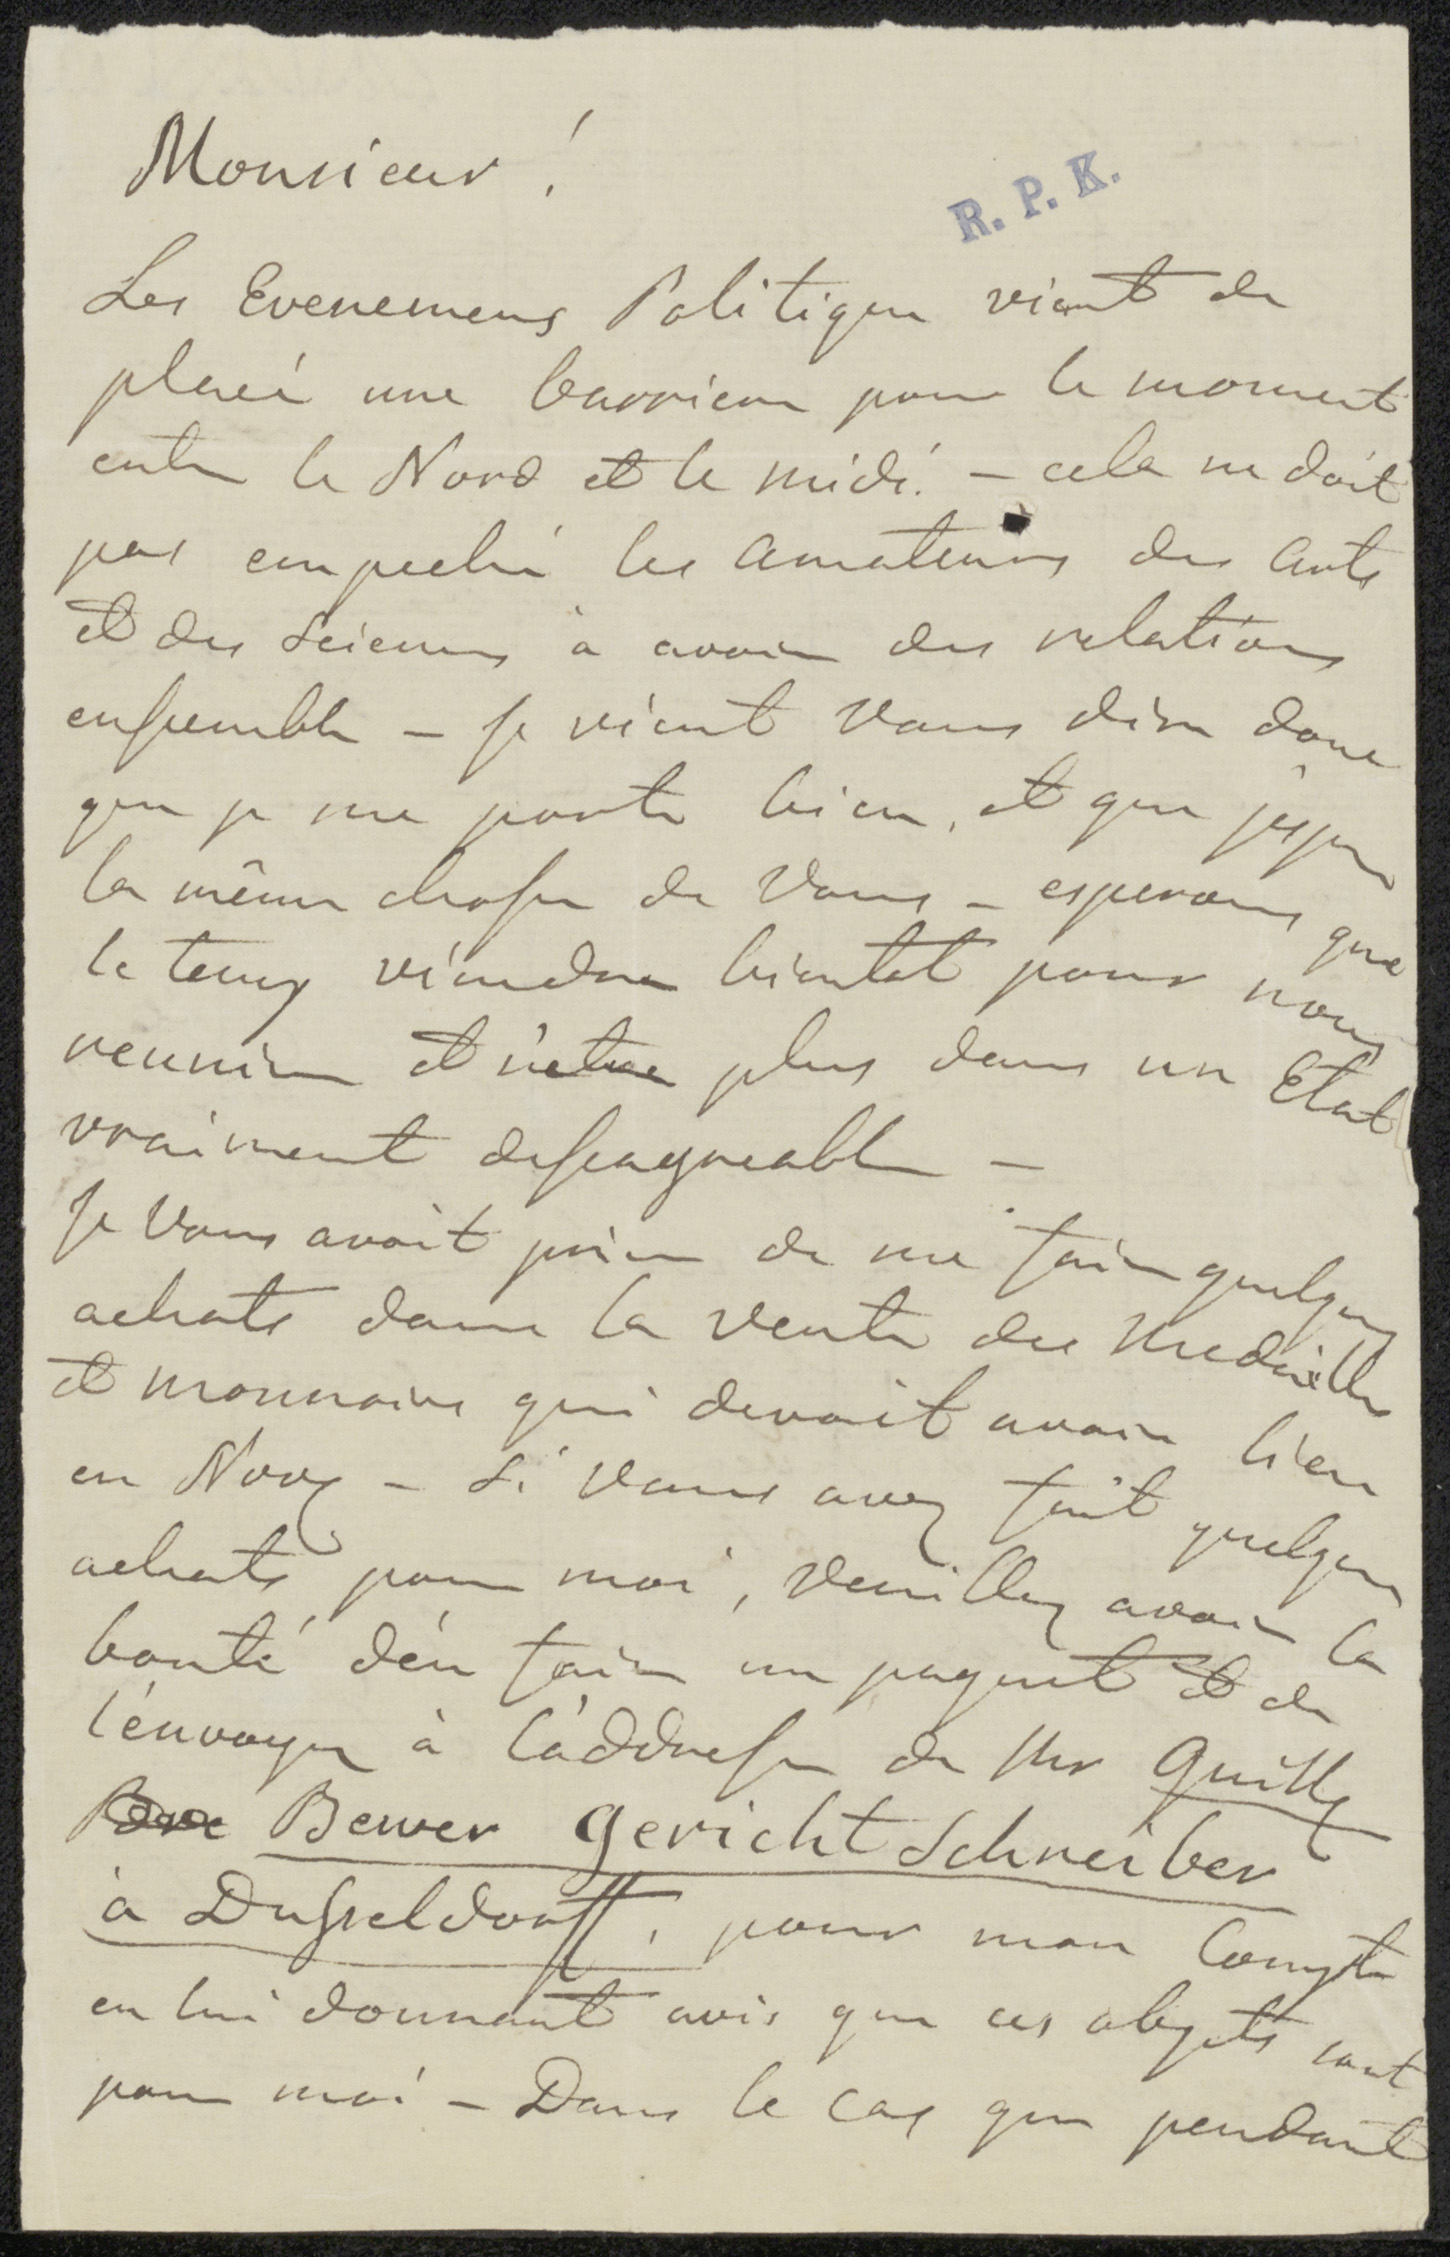 Monsieur!
R. P. K.
Les Evenemens Politique vient de
placé une barriere pour le moment
entre le Nord et le midi. – cela ne doit
pas empeché les amateurs des arts
et des Sciences à avoir des relations
ensemble – Je vient vous dire donc
que je me porte bien, et que j'espere
la même chose de vous – esperons que
le temps viendra bientot pour nous
reunire et n'etre plus dans un Etat
vraiment desagreable –
Je vous avoit prier de me faire quelques
achats dans la vente des medailles
et monnaies qui devoit avoir lieu
en Nov – Si vous avez fait quelques
achats pour moi, veuillez avoir la
bonté d'én faire un paquet et de
l'énvoyer à l'áddresse de Mr
Bewer Gericht Schreiber
à Dusseldorff, pour mon Compte
en lui donnant avis que ces objets sont
pour moi – Dans le cas que pendant